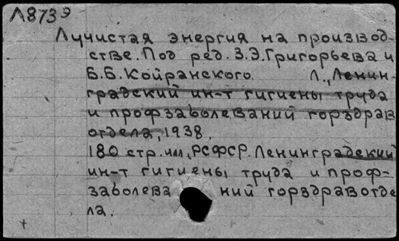 Л873э
Лучистая энергия на производ-
стве. Под ред. З.Э.Григорьева и
Б.Б.Койранского. Л., Ленин-
градский ин-т гигиены труда
и профзаболеваний горздрав
отдела, 1938.
180 стр. илл, РСФСР. Ленинградский
ин-т гигиены труда и проф-
заболева ний горздравотде
ла.